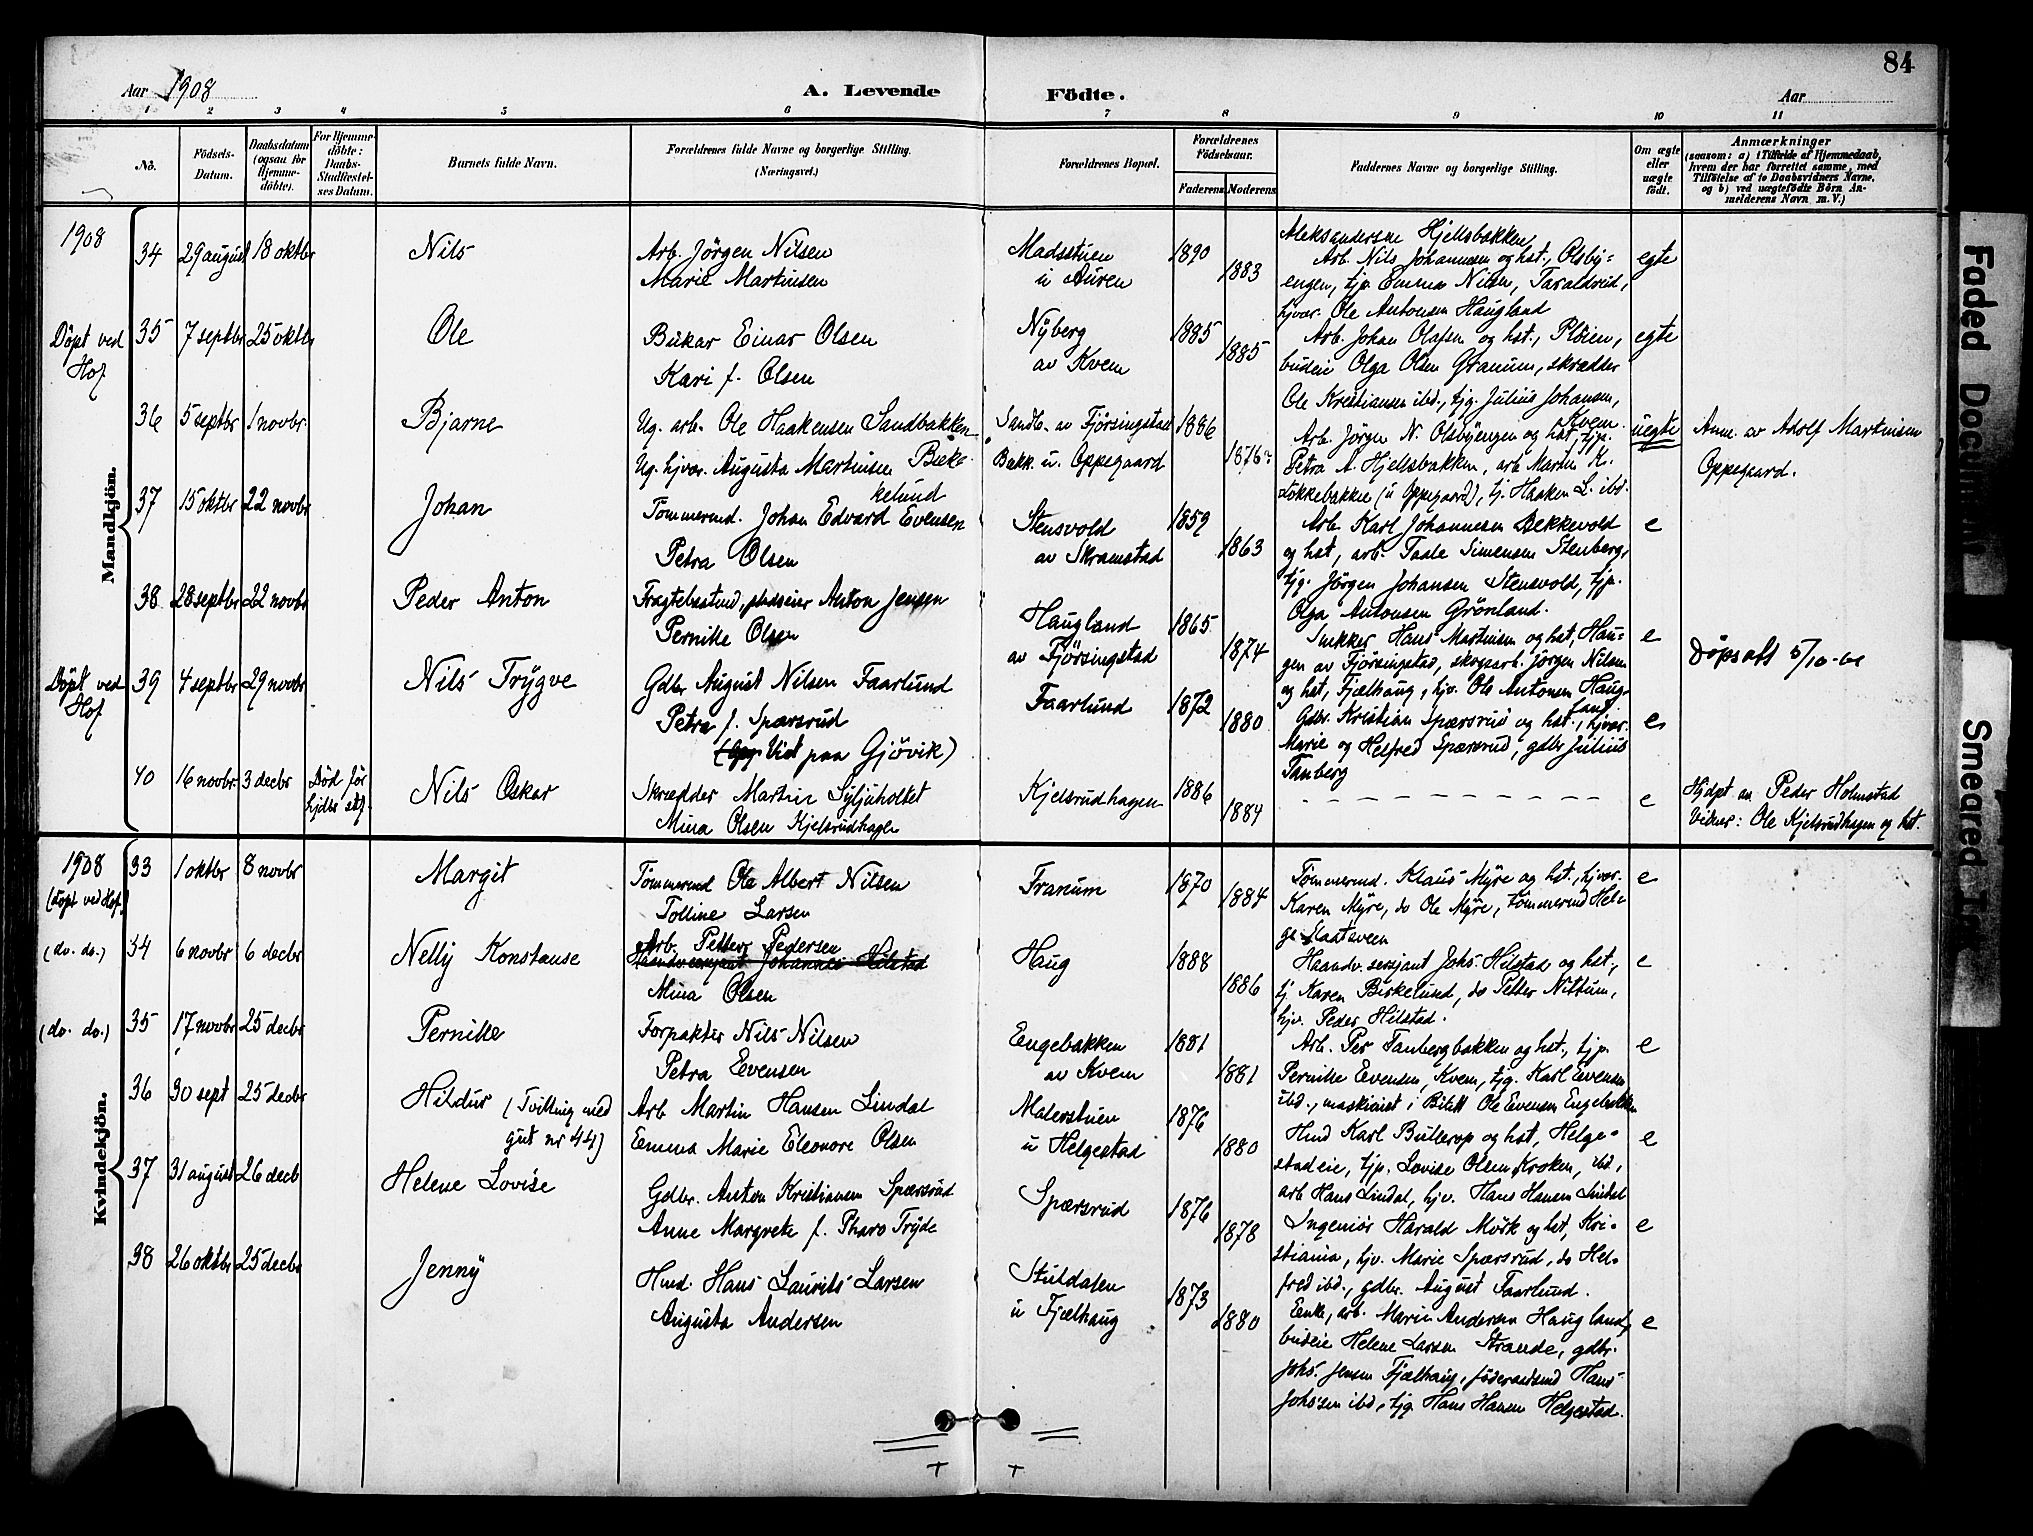 84
Aar 1908
A. Levende Födte.
Aar
1 2 3 4 5 6 7 8 9 10 11
No.
Födsels-Datum.
Daabsdatum (ogsaa for Hjemme-döbte).
For Hjemme-döbte: Daabs-Stadfæstel-ses Datum.
Barnets fulde Navn.
Forældrenes fulde Navne og borgerlige Stilling. (Næringsvei.)
Forældrenes Bopæl.
Forældrenes Födselsaar.
Faderens Moderens
Faddernes Navne og borgerlige Stilling.
Om ægte eller uægte födt.
Anmærkninger
(saasom: a) i Tilfælde af Hjemmedaab, hvem der har forrettet samme, med Tilföielse af to Daabsvidners Navne, og b) ved uægtefödte Börn An-melderens Navn m. V.)
Mandkjön.
1908 34 29 august 18 oktbr Nils
Arb. Jörgen Nilsen
Marie Martinsen
Madsstuen
u Auren
1890 1883
Aleksandersen Hjellsbakken
Arb Nils Johannesen og hst., Olsby-
engen, tjp Emma Nilsen, Taraldrud,
hjvar. Ole Antonsen Haugland
egte
Döpt ved Hof
35 7 septbr 25 oktbr Ole
Einar Olsen
Kari f. Olsen
Nyberg
av Kvem
1885 1885
Arb. Johan Olafsen og hst., Plöien,
budeie Olga Olsen Granum, skrædder
Ole Kristiansen ibd., tjg. Julius Johansen,
Kvem.
egte
36 5 septbr 1 novbr. Bjarne
Ug. arb. Ole Haakensen Sandbakken
Ug. hjvar. Augusta Martinsen Birke-
kelund
Sandb. av Fjörsingstad
Bakk. u. Oppegaard
1886 1876
Arb. Jörgen N. Olsbyengen og hst, tjp.
Petra A. Hjellsbakken, arb Martin K.
Lökkebakken (u Oppegaard), tj. Haaken L. ibd.
uegte
Anm. av Adolf Martinsen
Oppegaard.
37 15 oktbr 22 novbr Johan
Tömmermd. Johan Edvard Evensen
Petra Olsen
Stensvold
av Skramstad
1859 1863
Arb. Karl Johannesen Bekkevold
og hst, arb. Taale Simensen Stenberg,
tjg. Jörgen Johansen Stensvold, tjp.
Olga Antonsen Grönland.
e
38 28 septbr 22 novbr Peder Anton
Anton Jensen
Pernille Olsen
Haugland
av Fjörsingstad
1865 1874
Snekker Hans Martinsen og hst, Hau-
gen av Fjörsingstad, skogarb. Jörgen Nilsen
og hst, Fjælhaug, hjv. Ole Antonsen Haug-
land
e
Döpsatt 5/10
Döpt ved Hof
39 4 septbr 29 novbr Nils Trygve
Gdbr August Nilsen Faarlund
Petra f. Spærsrud
(Viet paa Gjövik)
Faarlund
1872 1880
Gdbr. Kristian Spærsrud og hst, hjvar.
Marie og Helfred Spærsrud, gdbr Julius
Tanberg
e
40 16 novbr. 3 decbr Död för
hjdbs stf.
Nils Oskar
Skrædder Martin Syljuholtet
Mina Olsen Kjelsrudhagen
Kjelsrudhagen
1886 1884
e
Hjdpt av Peder Holmstad
Vidner: Ole Kjelsrudhagen og hst.
Kvindekjön.
1908 (döpt ved Hof)
33 1 oktbr 8 novbr Margit
Tömmermd Ole Albert Nilsen
Tolline Larsen
Franum
1870 1884
Tömmermd. Klaus Myre og hst., hjvar.
Karen Myre, do Ole Myre, Tömmermd Hel-
ge Slaatsveen
e
(do. do.) 34 6 novbr 6 decbr Nelly Konstanse
Arb. Petter Pedersen
Haandv.sersjant Johannes Hilstad
Mina Olsen
Haug
1888 1886
Haandv. sersjant Johs. Hilstad og hst.,
tj Karen Birkelund, do Petter Nittum,
hjv. Peder Hilstad.
e
(do. do.) 35 17 novbr 25 decbr Pernille
Forpakter Nils Nilsen
Petra Evensen
Engebakken
av Kvem
1881 1881
Arb. Per Tanbergbakken og hst., tjp.
Pernille Evensen, Kvem, tjg. Karl Evensen
ibd., maskinist i Bitlt Ole Evensen Engebakken
e
36 30 sept 25 decbr Hildur (Tvilling med
gut nr 44)
Arb Martin Hansen Lindal
Emma Marie Eleonore Olsen
Malerstuen
u Helgestad
1876 1880
Hmd Karl Bullerop og hst, Helge-
stadeie, tjp. Lovise Olsen Kroken, ibd,
arb Hans Lindal, hjv. Hans Hansen Lindal
e
37 31 august 26 decb Helene Lovise
Gdbr. Anton Kristiansen Spærsrud
Anne Margrete f. Pharo Tryde
Spærsrud
1876 1878
Ingeniör Harald Mörk og hst, Kri-
stiania, hjv. Marie Spærsrud, do Hel-
fred ibd, gdbr. August Faarlund.
e
38 26 oktbr 25 decbr Jenny
Hmd. Hans Laurits Larsen
Augusta Andersen
Stuldalen
u Fjælhaug
1873 1880
Enke, arb. Marie Andersen Haugland,
budeie Helene Larsen Strande, gdbr.
Johs. Jensen Fjælhaug, föderaadsmd Hans
Johssen ibd, tjg Hans Hansen Helgestad.
e
Faded Document
Smeared Ink